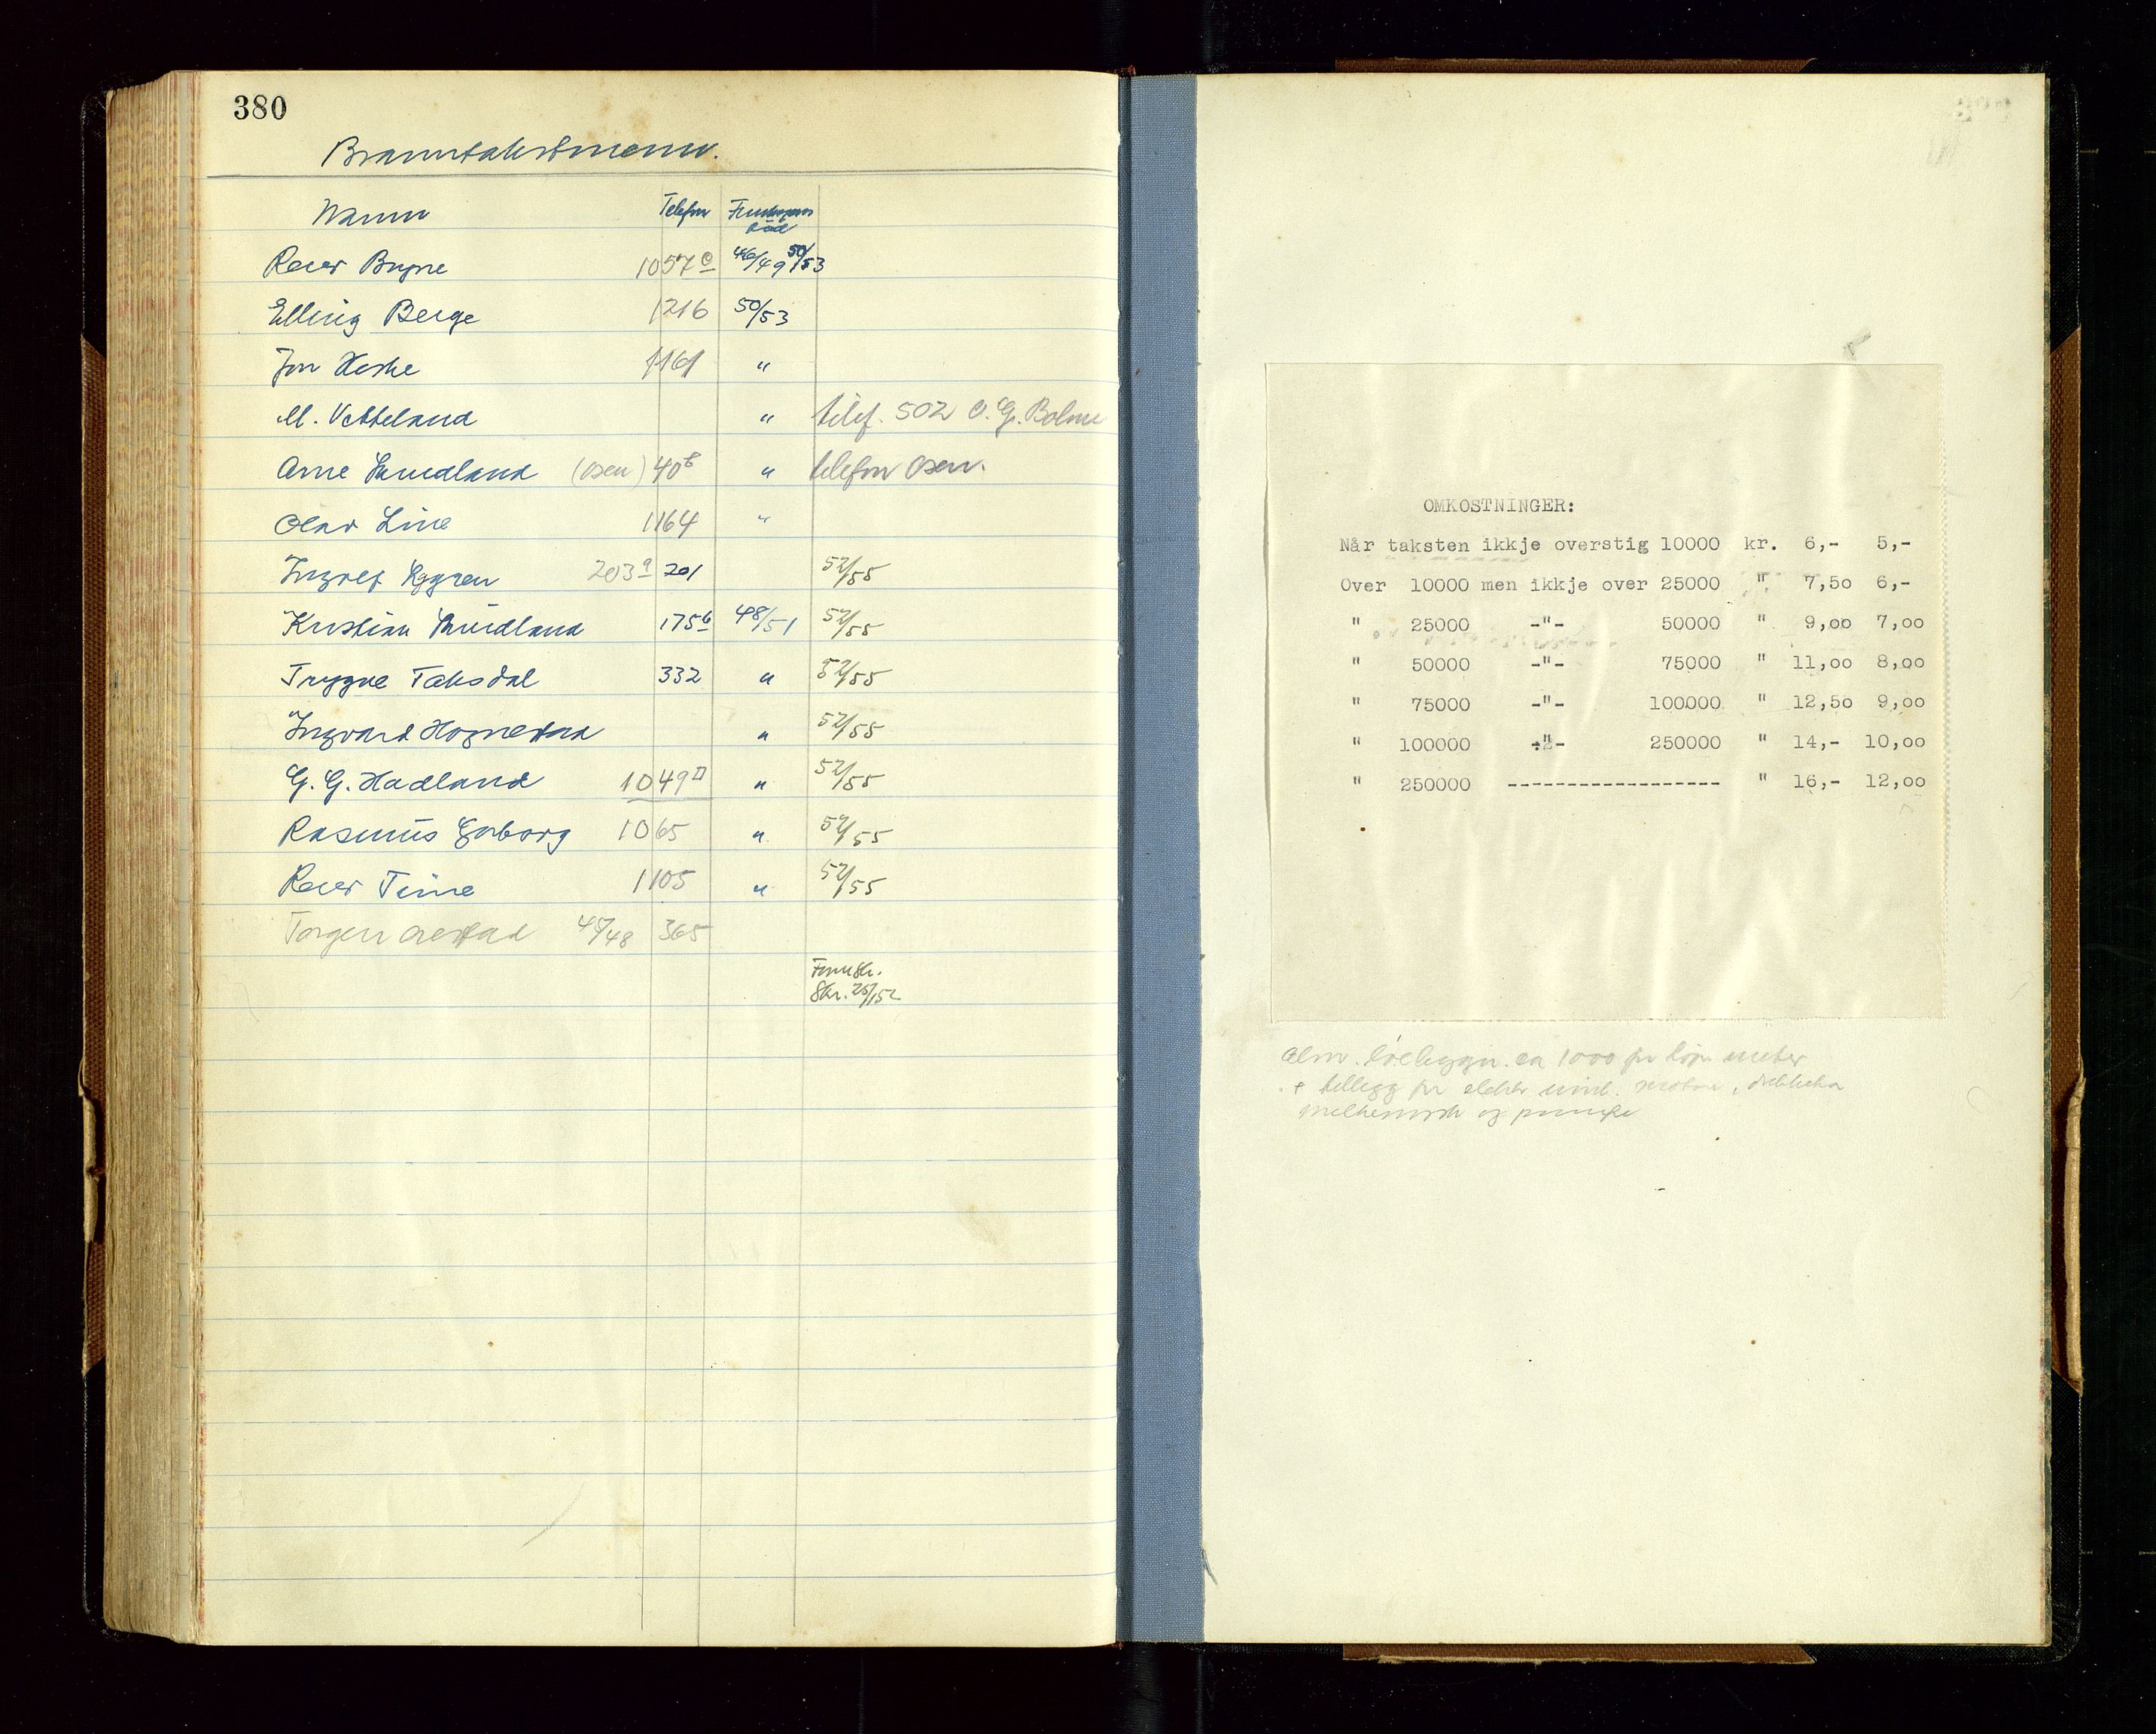 380
Branntakstmenn.
Namn Telefon Funksjons tid
Reier Bryne 1057 c 46/49 50/53
Elling Berge 1216 50/53
Jon Haske 1161 "
M. Vetteland " telef. 502 O. G. Bolme
Arne Smedland (Osen) 40 b " telefon Osen.
Olav Line 1164 "
Ingolf Eggren 203 a 201 52/55
Kristian Smidland 175 b 48/51 52/55
Trygve Taksdal 332 " 52/55
Ingvard Hognestad " 52/55
G. G. Hadland 1049 " 52/55
Rasmus Garborg 1065 " 52/55
Reier Time 1105 " 52/55
Torger 45/48 365
Formsk.
Skr. 25/1 52
OMKOSTNINGER:
Når taksten ikkje overstig 10000 kr. 6,- 5,-
Over 10000 men ikkje over 25000 " 7,50 6,-
" 25000 -"- 50000 " 9,00 7,00
" 50000 -"- 75000 " 11,00 8,00
" 75000 -"- 100000 " 12,50 9,00
" 100000 -"- 250000 " 14,- 10,00
" 250000 ------------------ " 16,- 12,00
Alm. ca 1000 pr løp. meter
+ tillegg for elektr. innl. motor,
og pumpe